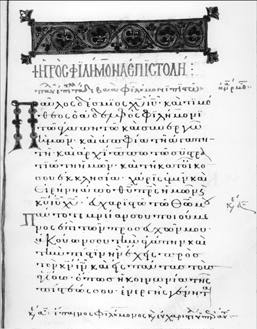 Η ΠΡΟΣ ΦΙΛΗΜΟΝΑ ΕΠΙΣΤΟΛΗ:
Παῦλος δέσμιος χυ ιυ καὶ τιμό
θεος ὁ ἀδελφὸς φιλήμονι
τῶ ἀγαπητῶ καὶ συνεργῶ
ἡμῶν· καὶ ἀπφία τῆ ἀγαπη
τῆ· καὶ ἀρχίππω τῶ συστρα
τιώτη ἡμῶν· καὶ τῆ κατ οἶκόν
σου ἐκκλησία· χάρις ὑμῖν καὶ
εἰρήνη ἀπὸ θυ πρς ἡμῶν κ
κυ ιυ χυ· εὐχαριστῶ τῶ θω μου
πάντοτε μνείαν σου ποιούμε
νος ἐπὶ τῶν προσευχῶν μου
ἀκούων σου τὴν ἀγάπην καὶ
τὴν πίστιν ἣν ἔχεις πρὸς
τὸν κν ιν καὶ εἰς πάντας τοὺς
ἁγίους· ὅπως ἡ κοινωνία τῆς
πίστεώς σου ἐνεργὴς γένηται